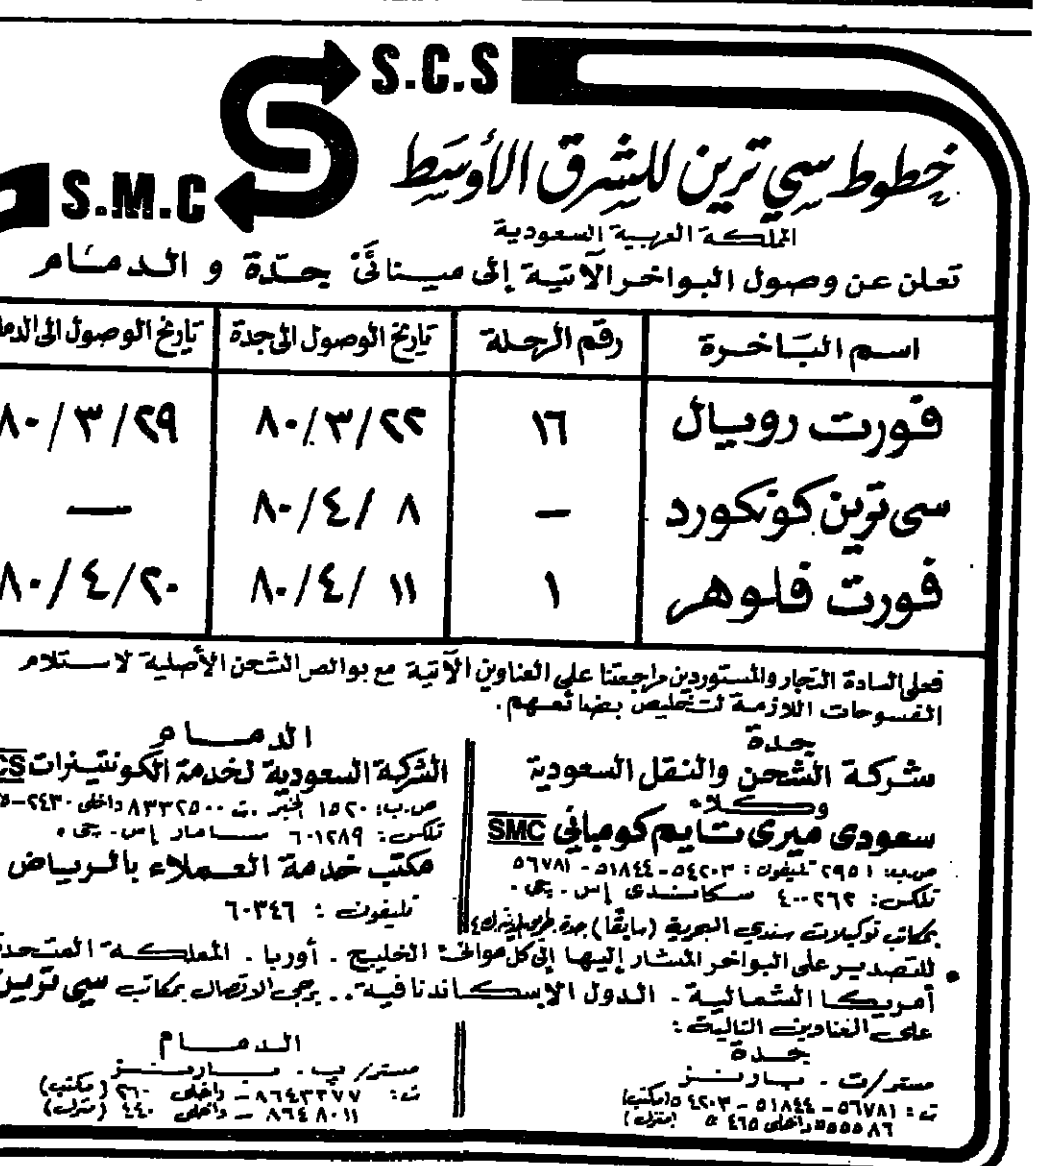 S.C.S
S.M.C
خطوط سي ترين للشرق الأوسط
المملكة العربية السعودية
تعلن عن وصول البواخر الآتية إلى مينائَي جدة و الدمام
اسم الباخرة رقم الرحلة تاريخ الوصول الى جدة تاريخ الوصول الى
فورت رويال ١٦ ٨٠/٣/٢٢ ٨٠/٣/٢٩
سي ترين كونكورد - ٨٠/٤/٨ —
فورت فلوهر ١ ٨٠/٤/١١ ٨٠/٤/٢٠
فعلى السادة التجار والمستوردين مراجعتنا على العناوين الآتية مع بوالص الشحن الأصلية لاستلام
الفسوحات اللازمة لتخليص بضائعهم.
جدة
شركة الشحن والنقل السعودية
وكلاء
سعودى ميرى تايم كومباني SMC
ص.ب: ٢٩٥١ تليفون: ٥٤٢٠٣ - ٥١٨٤٤ - ٥٦٧٨١
تلكس: ٤٠٠٢٦٢ سكاسندى إس. جى.
بمكاتب توكيلات سندي البحرية (سابقا) جدة
الدمام
الشركة السعودية لخدمة الكونتينرات
ص.ب: ١٥٢٠ الخبر ت. ٨٣٣٢٥٠٠ داخلى ٢٤٣٠
تلكس: ٦٠١٢٨٩ سامار إس. جى.
مكتب خدمة العملاء بالرياض
تليفون : ٦٠٣٤٦
• للتصدير على البواخر المشار إليها إلى كل موانئ الخليج . أوربا . المملكة المتحدة
أمريكا الشمالية . الدول الإسكاندنافية .. يرجى الاتصال بمكاتب سي ترين
على العناوين التالية :
جدة
مستر/ت . بارنز
ت : ٥٦٧٨١ - ٥١٨٤٤ - ٥٤٢٠٣ (مكتب)
٥٥٥٥٨٦ داخلى ٤٦٥ (منزل)
الدمام
مستر/ ب . بارنز
ت: ٨٦٤٣٣٧٧ - داخلى ٢٦٠ (مكتب)
٨٦٤٨٠١١ - داخلى ٤٤٠ (منزل)